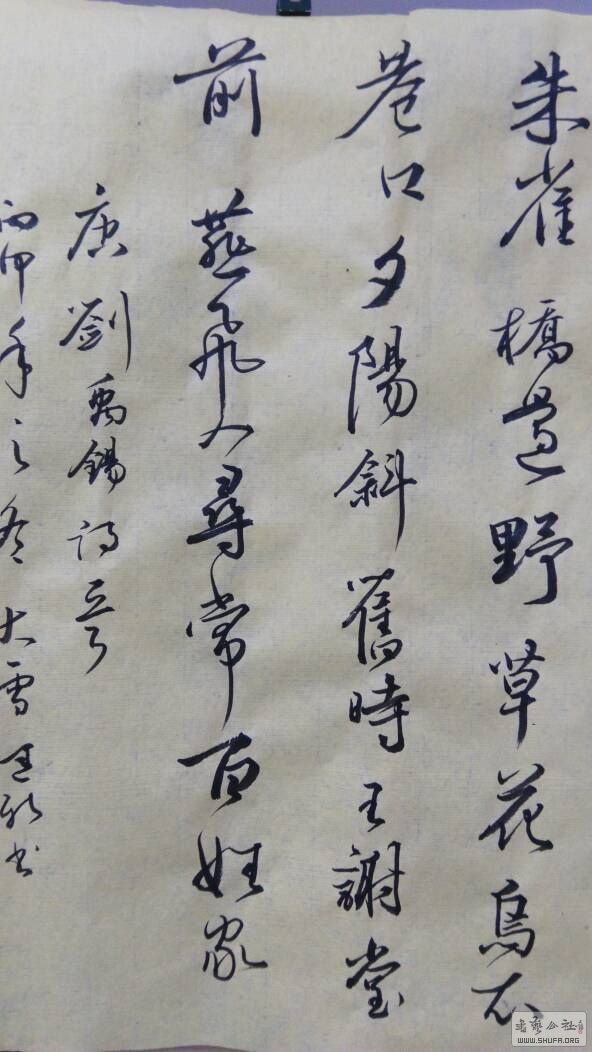 朱雀橋邊野草花烏衣
巷口夕陽斜舊時王謝堂
前燕飛入尋常百姓家
唐劉禹錫詩
丙申年之冬大雪书
書藝公社
WWW.SHUFA.ORG